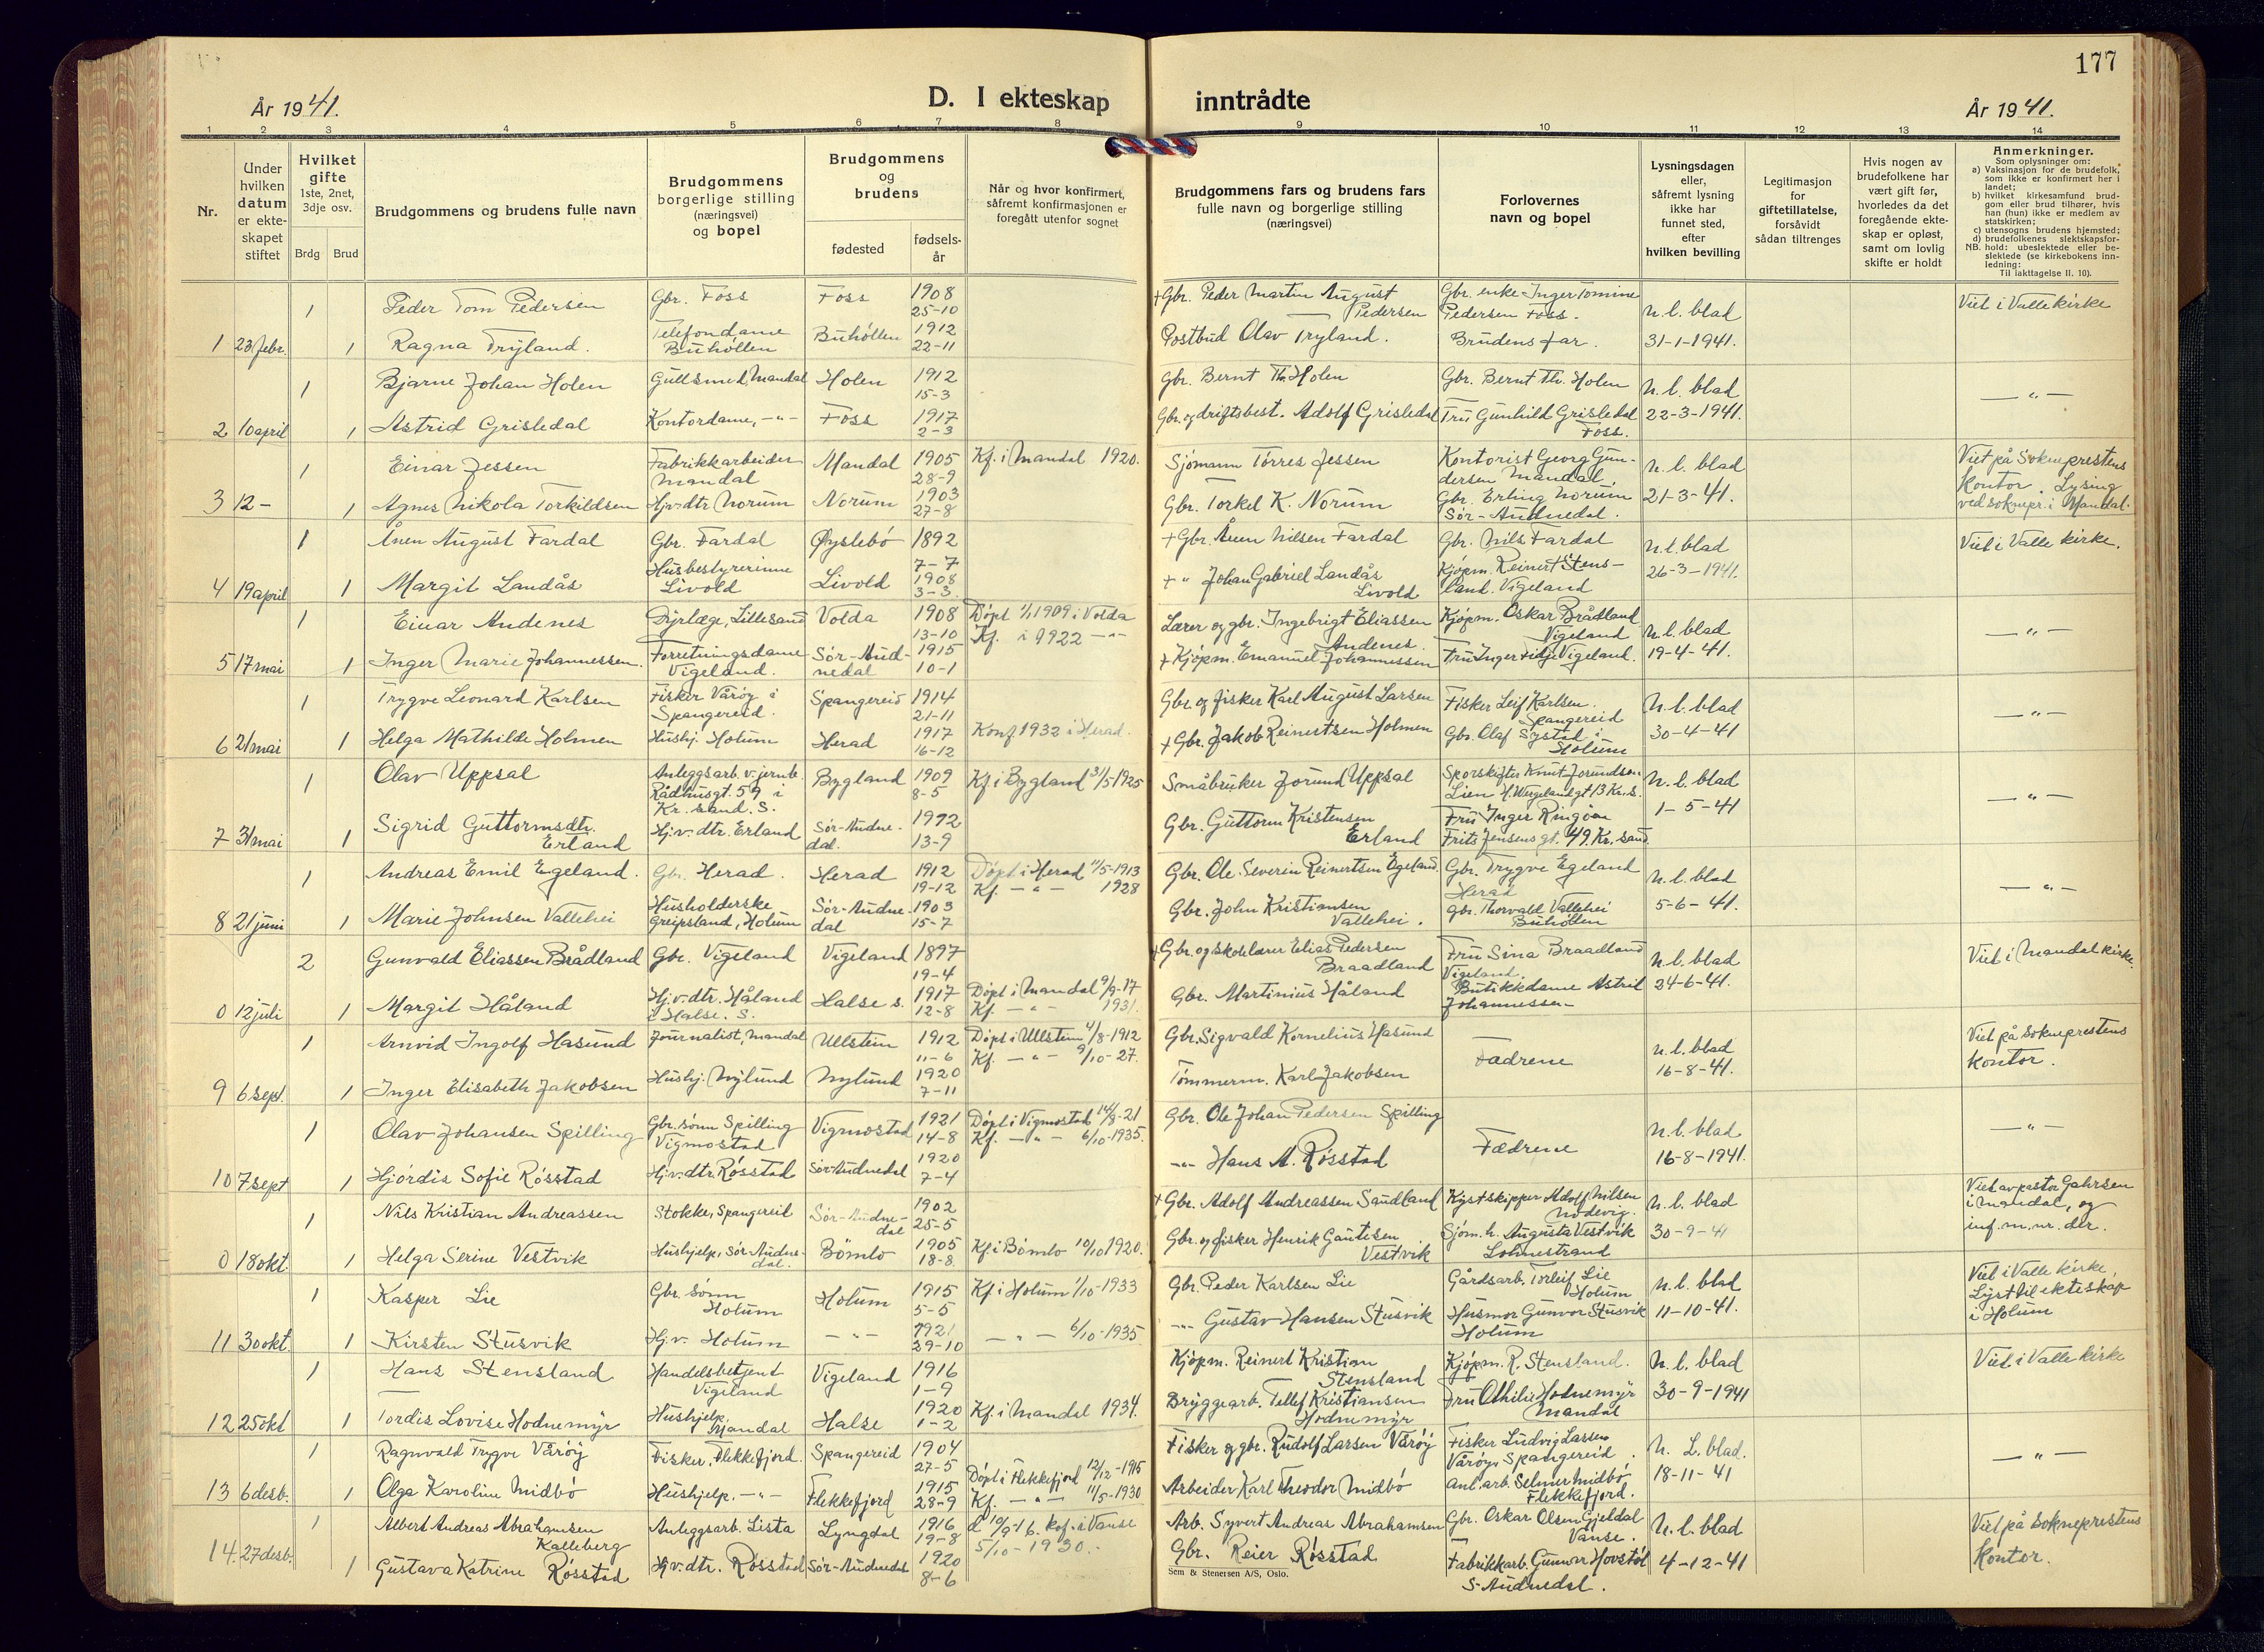 177
År 1941.
D. I ekteskap inntrådte
År 1941.
1 2 3 4 5 6 7 8 9 10 11 12 13 14
Nr.
Under hvilken datum er ekte-skapet stiftet
Hvilket gifte 1ste, 2net, 3dje osv.
Brdg Brud
Brudgommens og brudens fulle navn
Brudgommens borgerlige stilling (næringsvei) og bopel
Brudgommens og brudens
fødested
fødsels-år
Når og hvor konfirmert, såfremt konfirmasjonen er foregått utenfor sognet
Brudgommens fars og brudens fars fulle navn og borgerlige stilling (næringsvei)
Forlovernes navn og bopel
Lysningsdagen eller, såfremt lysning ikke har funnet sted, efter hvilken bevilling
Legitimasjon for giftetillatelse, forsåvidt sådan tiltrenges
Hvis nogen av brudefolkene har vært gift før, hvorledes da det foregående ekte-skap er opløst, samt om lovlig skifte er holdt
Anmerkninger.
Som oplysninger om:
a) Vaksinasjon for de brudefolk, som ikke er konfirmert her i landet;
b) hvilket kirkesamfund brud-gom eller brud tilhører, hvis han (hun) ikke er medlem av statskirken;
c) utensogns brudens hjemsted;
d) brudefolkenes slektskapsfor-hold: ubeslektede eller be-slektede (se kirkebokens inn-ledning:
NB.
Til iakttagelse II. 10).
1 Peder Tom Pedersen Gbr. Foss Foss 1908 25-10 + Gbr. Peder Martin August Pedersen Gbr. enke Inger Tomine Pedersen Foss. N. l. blad Viet i Valle kirke
1 23 febr. 1 Ragna Tryland. Telefondame Buhöllen Buhöllen 1912 22-11 Postbud Olav Tryland. Brudens far. 31-1-1941.
1 Bjarne Johan Holen Gullsmed, Mandal Holen 1912 15-3 Gbr. Bernt Th. Holen Gbr. Bernt Th. Holen N. l. blad — " —
2 10 april 1 Astrid Grisledal Kontordame, -"- Foss 1917 2-3 Gbr. og driftsbest. Adolf Grisledal Fru Gunhild Grisledal Foss. 22-3-1941.
1 Einar Jessen Fabrikkarbeider Mandal Mandal 1905 28-9 Kf. i Mandal 1920. Sjömann Törres Jessen Kontorist Georg Gun-dersen Mandal. N. l. blad Viet på Sokneprestens Kontor. Lysing ved soknepr. i Mandal.
3 12 - 1 Agnes Nikola Torkildsen Hjv. dtr Norum Norum 1903 27-8 Gbr. Torkel K. Norum Gbr. Erling Norum Sör-Audnedal. 21-3-41.
1 Ånen August Fardal Gbr. Fardal Øyslebö 1892 7-7 + Gbr. Ånen Nilsen Fardal Gbr. Nils Fardal N. l. blad Viet i Valle kirke.
4 19 april 1 Margit Landås Husbestyrerinne Livold Livold 1908 3-3. + " Johan Gabriel Landås Livold Kjöpm. Reinert Stens-land. Vigeland 26-3-1941.
1 Einar Andenes Dyrlæge, Lillesand Volda 1908 13-10 Döpt 1/1 1909 i Volda Kf. i 1922 -"- Lærer og gbr. Ingebrigt Eliassen Andenes. Kjöpm. Oskar Brådland Vigeland N. l. blad — " —
5 17 mai 1 Inger Marie Johannessen. Forretningsdame Vigeland. Sör-Aud-nedal 1915 10-1 + Kjöpm. Emanuel Johannessen Fru Inger Fidje Vigeland. 19-4-41.
1 Trygve Leonard Karlsen Fisker Våröy i Spangereid. Spangereid 1914 21-11 Gbr. og fisker Karl August Larsen Fisker Leif Karlsen. Spangereid N. l. blad — " —
6 21 mai 1 Helga Mathilde Holmen Hushj. Holum Herad 1917 16-12 Konf 1932 i Herad. + Gbr. Jakob Reinertsen Holmen Gbr. Olaf Systad i Holum 30-4-41
1 Olav Uppsal Anleggsarb. v. jernb. Rådhusgt. 59 i Kr. sand. S. Bygland 1909 8-5 Kf i Bygland 31/5 1925 Småbruker Jorund Uppsal Sporskifter Knut Jorundsen Lien H. Wergelandgt 13 Kr. S. N. l. blad — " —
7 31 mai 1 Sigrid Guttormsdtr. Erland Hjv. dtr. Erland Sör-Audne-dal. 1912 13-9 Gbr. Guttorm Kristensen Erland Fru Inger Ringöen Frits Jensens gt. 49. Kr. sand. 1-5-41
1 Andreas Emil Egeland. Gbr. Herad. Herad 1912 19-12 Döpt i Herad 11/5-1913 Kf. — " — 1928 Gbr. Ole Severin Reinertsen Egeland. Gbr. Trygve Egeland Herad N. l. blad — " —
8 21 juni 1 Marie Johnsen Vallehei Husholderske Greipsland, Holum Sör-Audne-dal 1903 15-7 Gbr. John Kristiansen Vallehei. gbr. Thorvald Vallehei Buhöllen 5-6-41.
2 Gunvald Eliassen Brådland Gbr. Vigeland Vigeland 1897 19-4 + Gbr. og skolelærer Elias Pedersen Braadland Fru Sina Braadland Vigeland. N. l. blad Viet i Mandal kirke.
0 12 juli 1 Margit Håland Hjv. dtr. Håland i Halse. S. Halse s. 1917 12-8 Döpt i Mandal 9/9-17 Kf. — " — 1931. Gbr. Martinius Håland Butikkdame Astrid Johannessen 24-6-41.
1 Arnvid Ingolf Hasund Journalist, Mandal Ullstein 1912 11-6 Döpt i Ullstein 4/8-1912 Kf. — " — 9/10-27. Gbr. Sigvald Kornelius Hasund Fædrene N. l. blad Viet på Sokneprestens Kontor.
9 6 sept. 1 Inger Elisabeth Jakobsen Hushj. Nylund Nylund 1920 7-11 Tömmerm. Karl Jakobsen 16-8-41.
1 Olav Johansen Spilling Gbr. sönn Spilling Vigmostad Vigmostad 1921 14-8 Döpt i Vigmostad 14/8-21 Kf. — " — 6/10-1935. Gbr. Ole Johan Pedersen Spilling Fædrene N. l. blad — " —
10 7 sept 1 Hjördis Sofie Rösstad Hjv. dtr Rösstad Sör-Audnedal 1920 7-4 -"- Hans A. Rösstad 16-8-1941.
1 Nils Kristian Andreassen Stokke, Spangereid Sör-Audne-dal 1902 25-5 + Gbr. Adolf Andreassen Sandland Kystskipper Adolf Nilsen Nodevig. N. l. blad Viet av pastor Gahrsen i Mandal, og inf. m. nr. der.
0 18 okt. 1 Helga Serine Vestvik Hushjelp, Sör-Audne-dal. Bömlo 1905 18-8. Kf i Bömlo 10/10 1920. Gbr. og fisker Henrik Gautesen Vestvik Sjöm. h. Augusta Vestvik Lohnestrand 30-9-41
1 Kasper Lie Gbr. sönn Holum Holum 1915 5-5 Kf. i Holum 1/10-1933 Gbr. Peder Karlsen Lie Gårdsarb. Torleif Lie Holum N. l. blad Viet i Valle kirke, Lyst til ekteskap i Holum
11 30 okt. 1 Kirsten Stusvik Hjv. Holum -"- 1921 29-10 — " — 6/10-1935 -"- Gustav Hansen Stusvik Husmor Gunvor Stusvik Holum 11-10-41.
1 Hans Stensland Handelsbetjent Vigeland Vigeland 1916 1-9 Kjöpm. Reinert Kristian Stensland Kjöpm. R. Stensland. N. l. blad Viet i Valle kirke
12 25 okt 1 Tordis Lovise Hodnemyr Hushjelp, Mandal Halse 1920 1-2 Kf. i Mandal 1934. Bryggearb. Tellef Kristiansen Hodnemyr Fru Othilie Hodnemyr Mandal 30-9-1941
1 Ragnvald Trygve Våröy Fisker, Flekkefjord. Spangereid 1904 27-5 Fisker og gbr. Rudolf Larsen Våröy Fisker Ludvig Larsen Våröy, Spangereid. N. l. blad. — " —
13 6 desb. 1 Olga Karoline Midbö Hushjelp. -"- Flekkefjord 1915 28-9 Döpt i Flekkefjord 12/12-1915 Kf. — " — 11/5-1930 Arbeider Karl Theodor Midbö Anl. arb. Selmer Midbö Flekkefjord. 18-11-41
1 Albert Andreas Abrahamsen Kalleberg Anleggsarb. Lista Lyngdal 1916 19-8 d 10/9-16. Kof. i Vanse 5/10-1930.- Arb. Syvert Andreas Abrahamsen Gbr. Oskar Olsen Gjeldal Vanse. N. l. blad Viet på Sokneprestens Kontor.
14. 27 desb. 1 Gustava Katrine Rösstad Hjv. dtr. Rösstad Sör-Audnedal 1920 8-6 Gbr. Reier Rösstad Fabrikkarb. Gunvor Hovstöl S-Audnedal. 4-12-41
Sem & Stenersen A/S, Oslo.